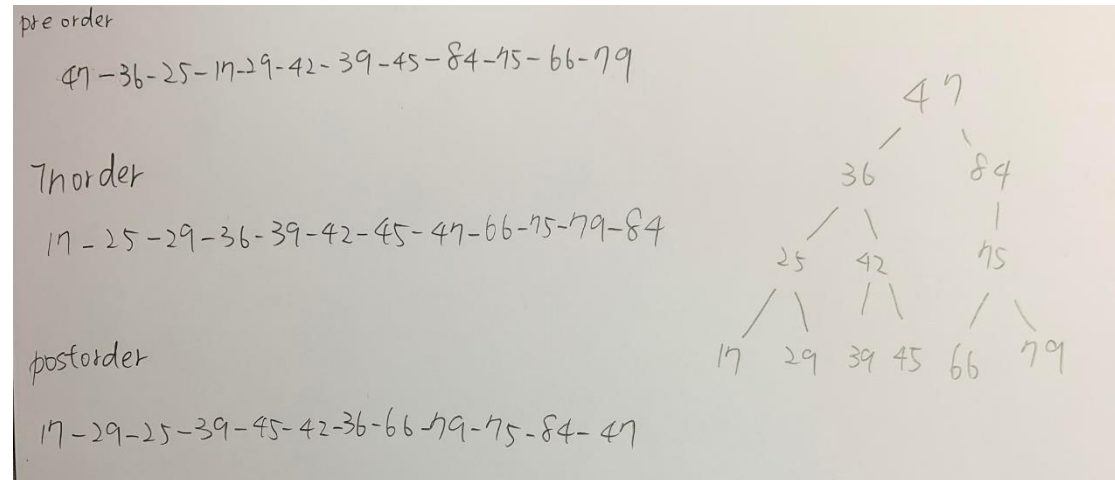 preorder
47-36-25-17-29-42-39-45-84-75-66-79
Inorder
17-25-29-36-39-42-45-47-66-75-79-84
postorder
17-29-25-39-45-42-36-66-79-75-84-47
47
36 84
25 42 75
17 29 39 45 66 79